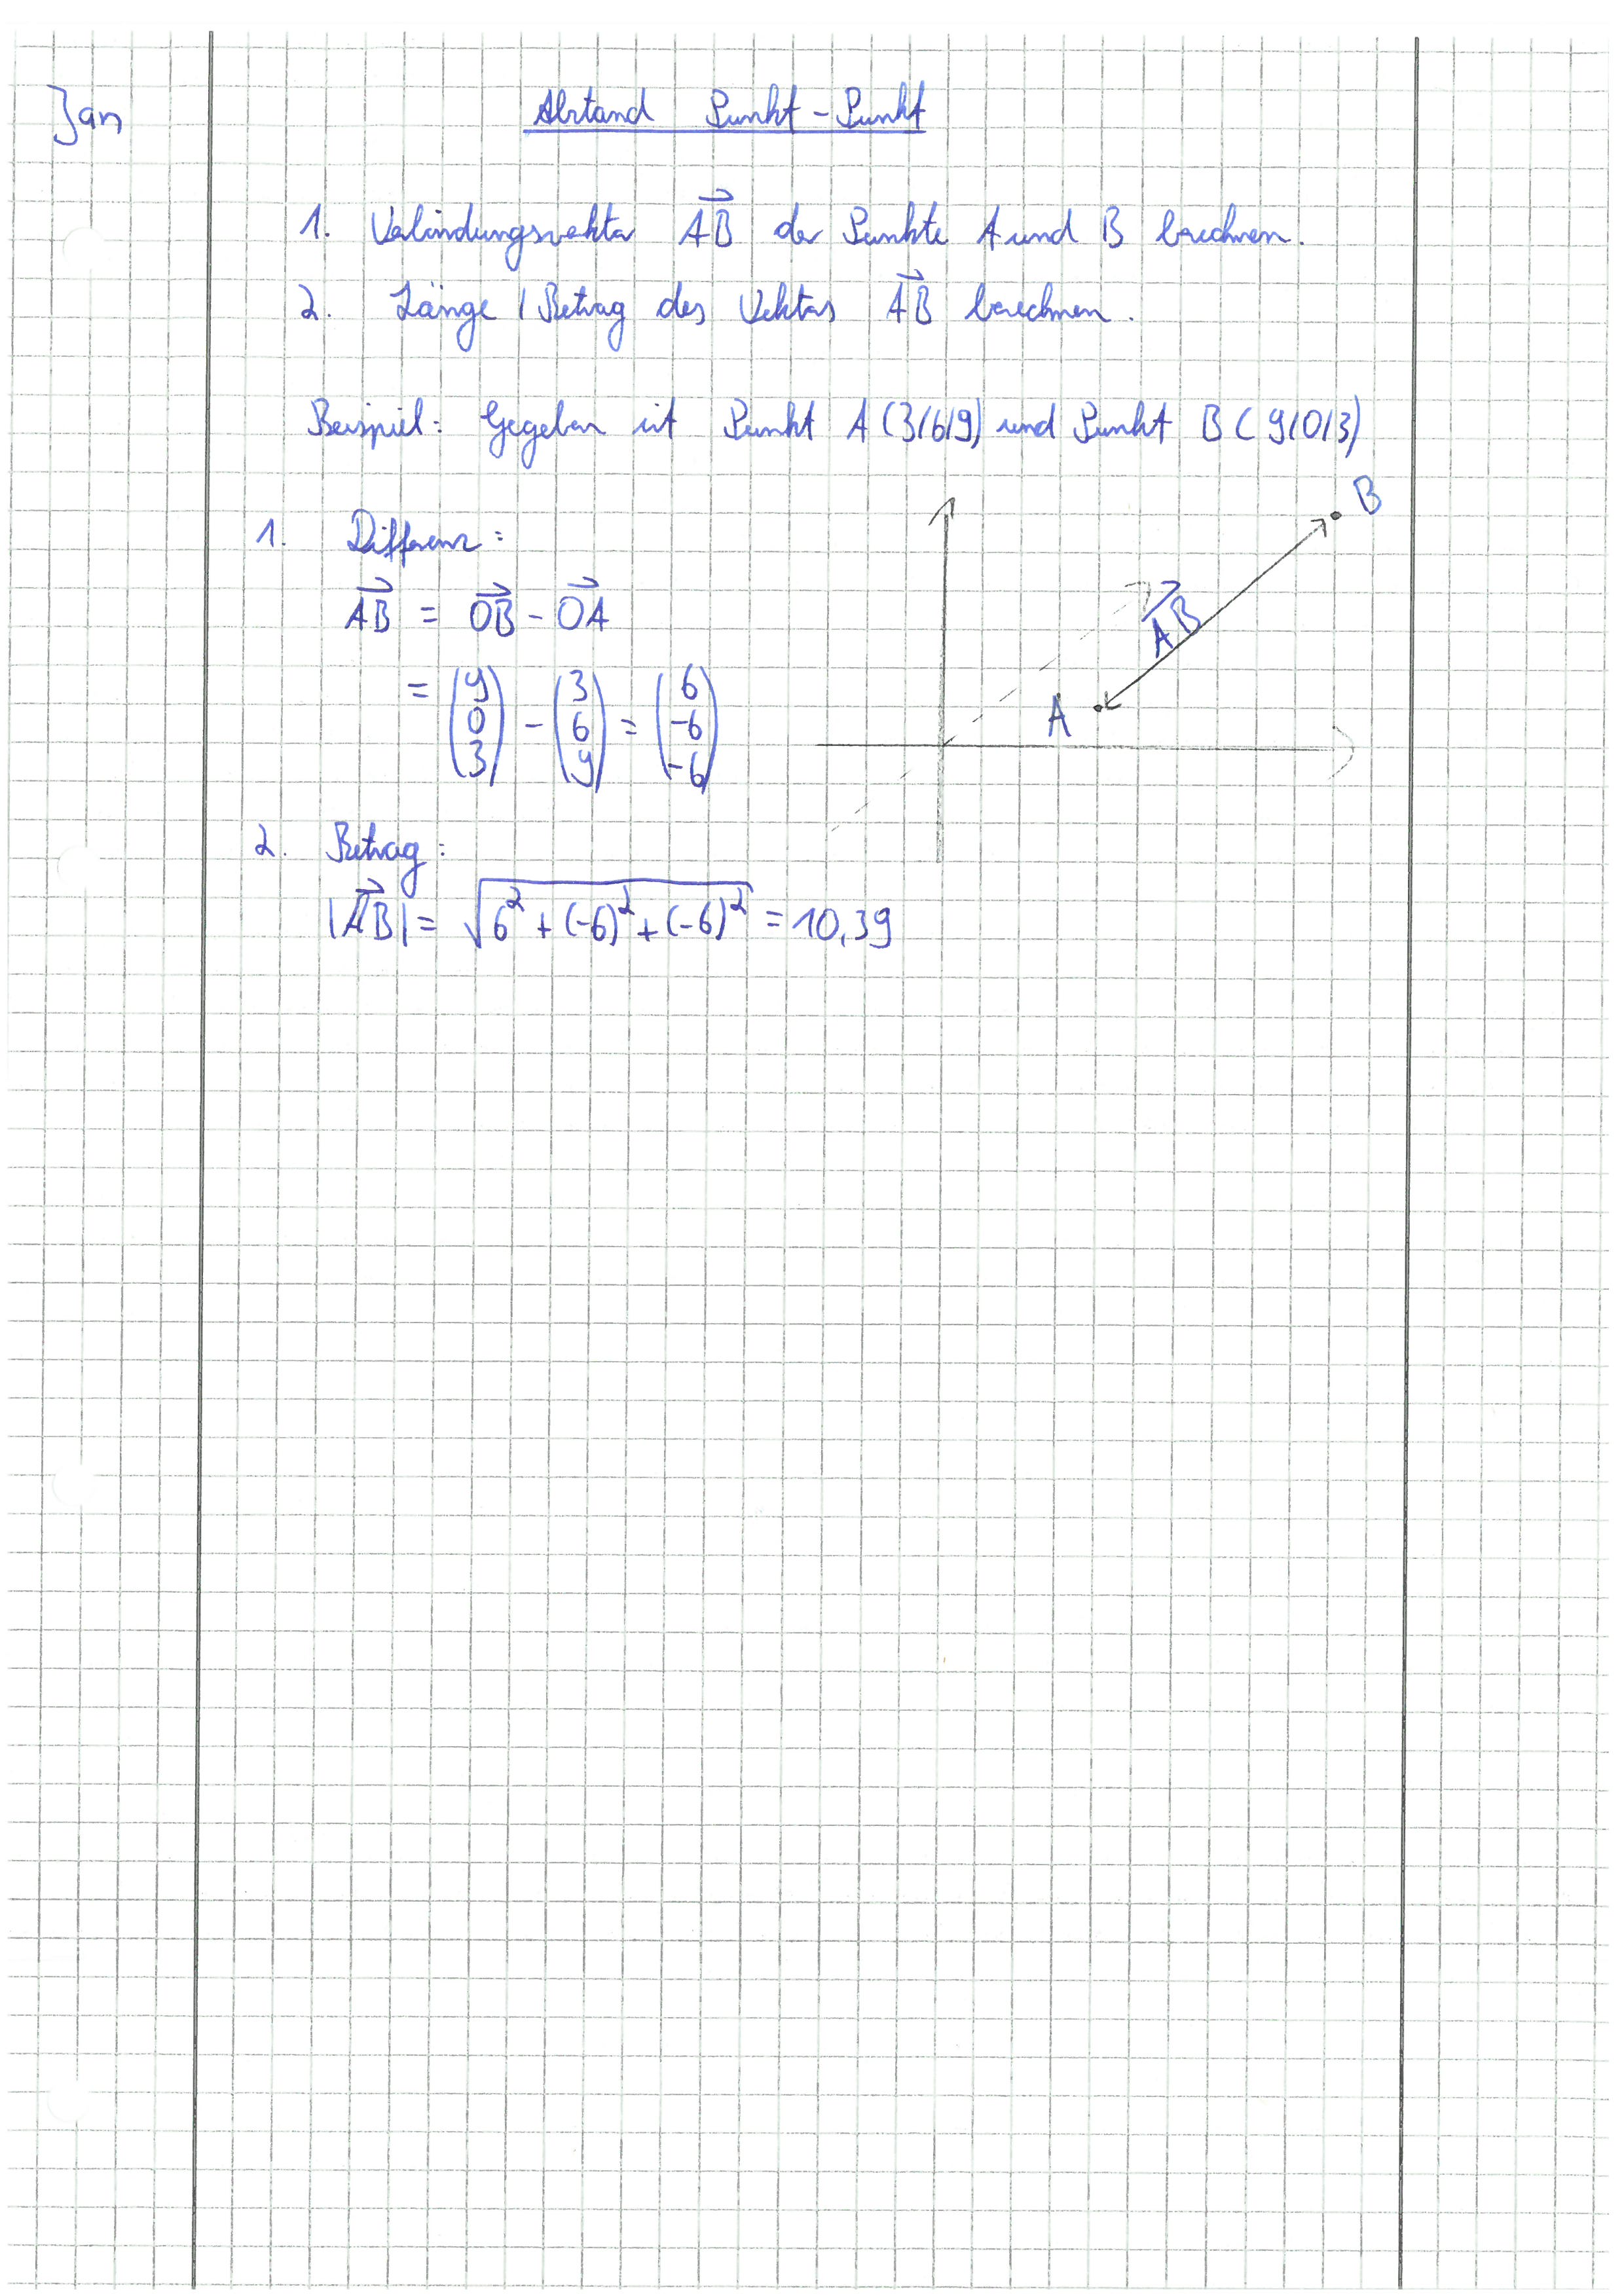 Jan
Abstand Punkt - Punkt
1. Verbindungsvektor AB⃗ der Punkte A und B berechnen.
2. Länge / Betrag des Vektors AB⃗ berechnen.
Beispiel: Gegeben ist Punkt A (3/6/9) und Punkt B (9/0/3)
1. Differenz:
AB⃗ = OB⃗ - OA⃗
= (9 0 3) - (3 6 9) = (6 -6 -6)
B
AB⃗
A
2. Betrag:
|AB⃗| = √(6² + (-6)² + (-6)²) = 10,39